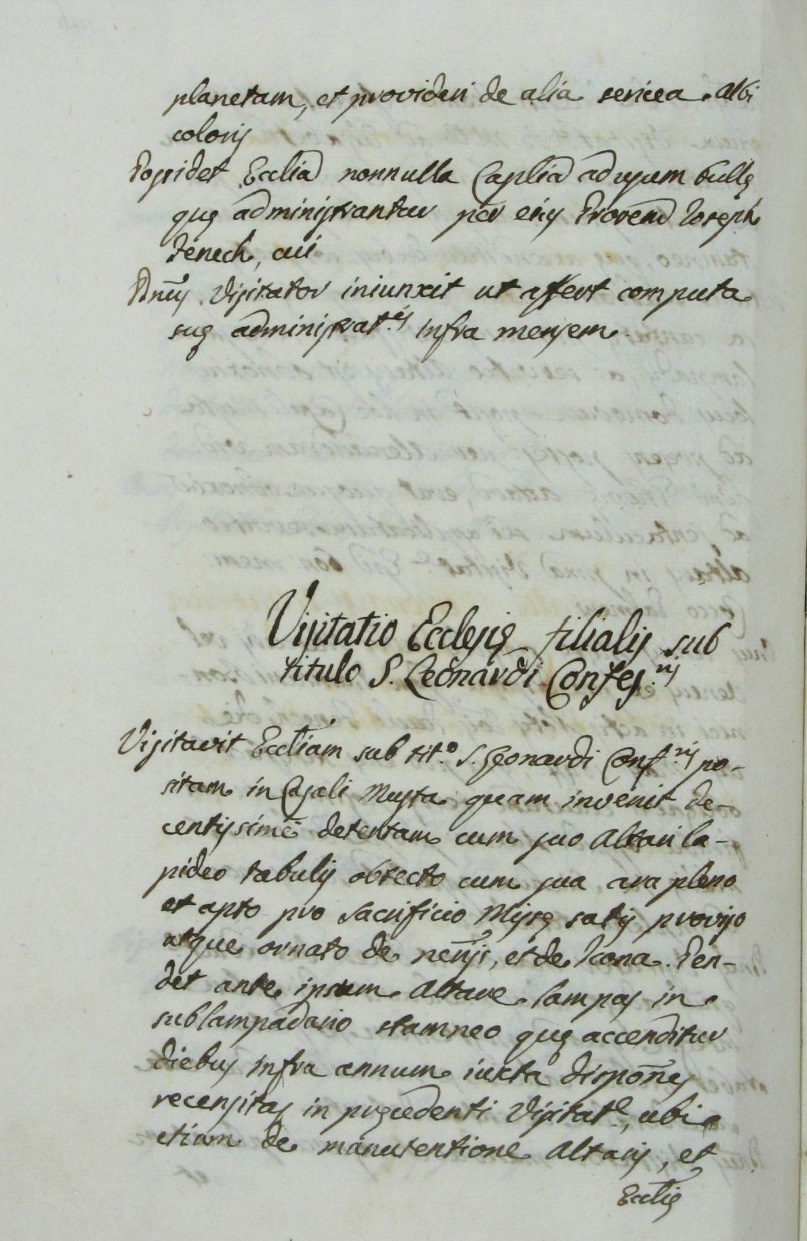 planetam, et provideri de alia sericea Albi
coloris
Possidet Eccliã nonnulla Caplia ad usum bullę
quę administrantur per eius Provend Joseph
Tenech, cui
Dnus Visitator iniunxit ut affert computa
suę administrat.is infra mensem
Visitatio Ecclesię filialis sub
titulo S. Leonardi Confes.ris
Visitavit Eccliam sub tit.o S. Leonardi Conf.ris po-
sitam in Casali Musta quam invenit de-
centissime detentam cum suo Altari la-
pideo tabulis obtecto cum sua ara pleno
et apto pro Sacrificio Missę satis proviso
atque ornato de necijs, et de Icona. Pen-
det ante ipsum Altare Lampas in
sublampadario stamneo quę accenditur
diebus infra annum iuxta dispones
recensitas in pręcedenti Visitat.e, ubi
etiam de manutentione Altaris, et
Eccłię